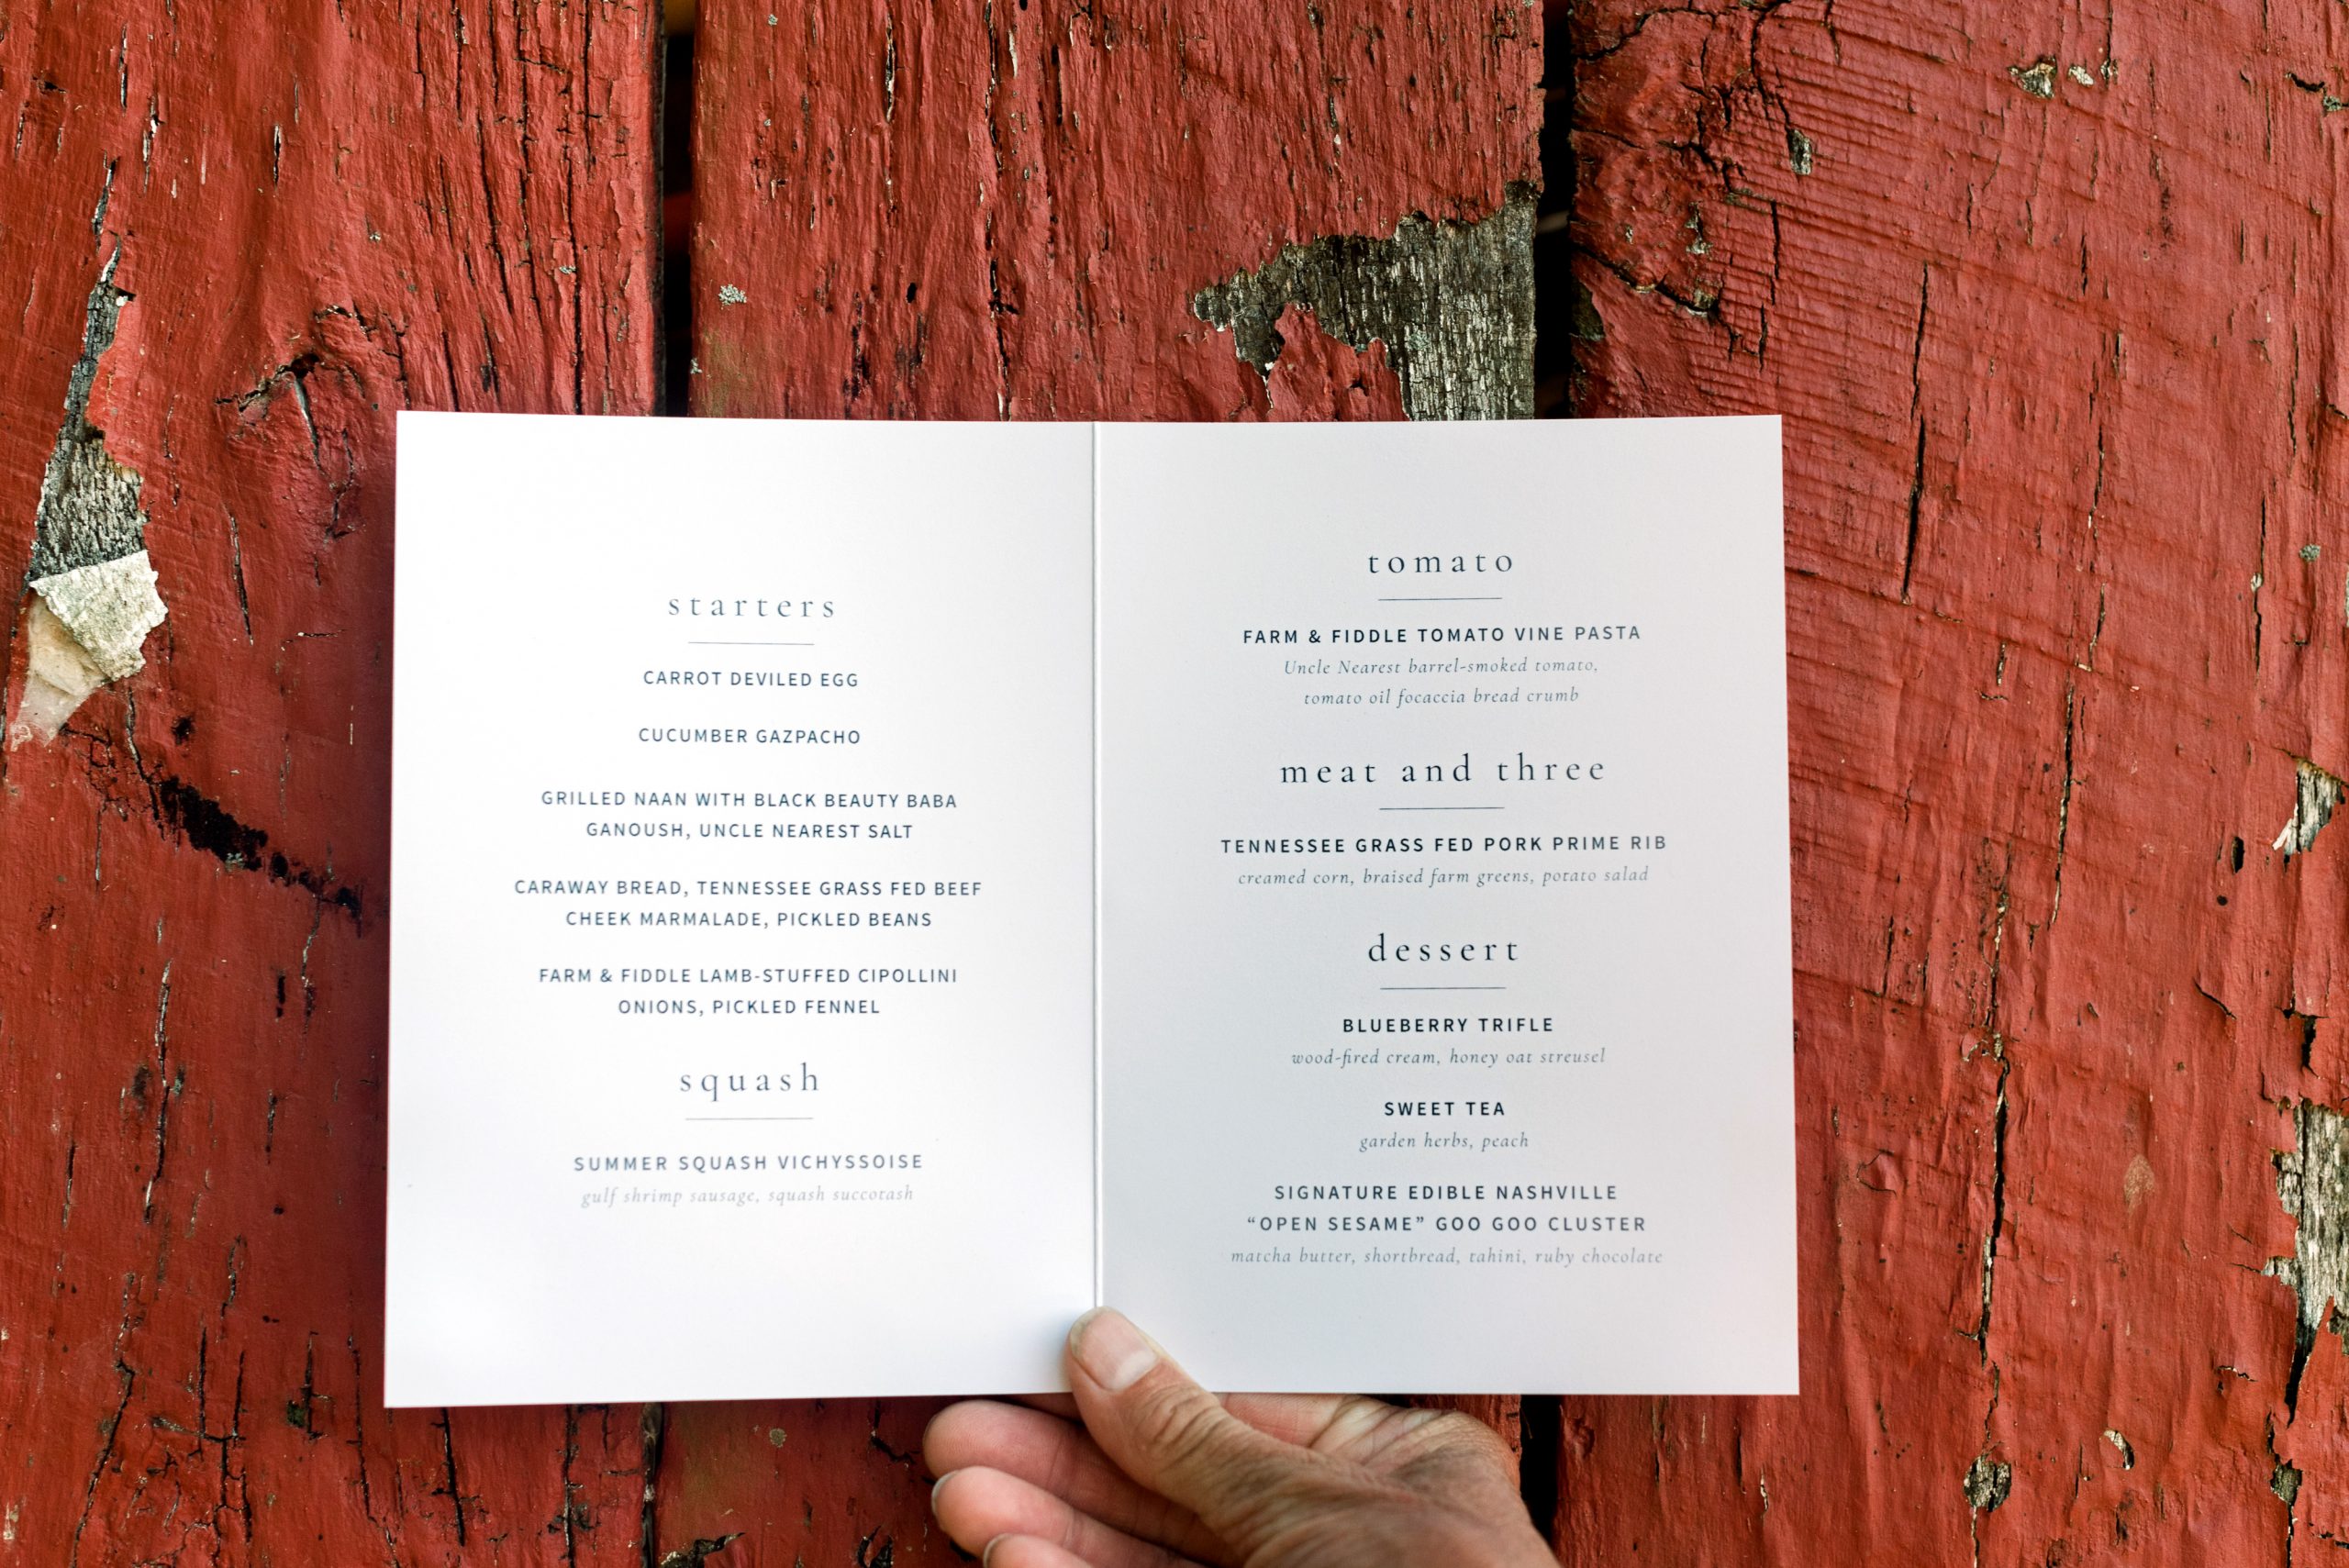 starters
CARROT DEVILED EGG
CUCUMBER GAZPACHO
GRILLED NAAN WITH BLACK BEAUTY BABA
GANOUSH, UNCLE NEAREST SALT
CARAWAY BREAD, TENNESSEE GRASS FED BEEF
CHEEK MARMALADE, PICKLED BEANS
FARM & FIDDLE LAMB-STUFFED CIPOLLINI
ONIONS, PICKLED FENNEL
squash
SUMMER SQUASH VICHYSSOISE
gulf shrimp sausage, squash succotash
tomato
FARM & FIDDLE TOMATO VINE PASTA
Uncle Nearest barrel-smoked tomato,
tomato oil focaccia bread crumb
meat and three
TENNESSEE GRASS FED PORK PRIME RIB
creamed corn, braised farm greens, potato salad
dessert
BLUEBERRY TRIFLE
wood-fired cream, honey oat streusel
SWEET TEA
garden herbs, peach
SIGNATURE EDIBLE NASHVILLE
“OPEN SESAME” GOO GOO CLUSTER
matcha butter, shortbread, tahini, ruby chocolate